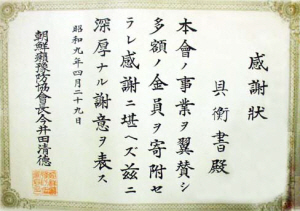 感謝狀
具衡書殿
本會ノ事業ヲ翼賛シ
多額ノ金員ヲ寄附セ
ラレ感謝ニ堪ヘズ茲ニ
深厚ナル謝意ヲ表ス
昭和九年四月二十九日
朝鮮癩豫防協會長今井田清德